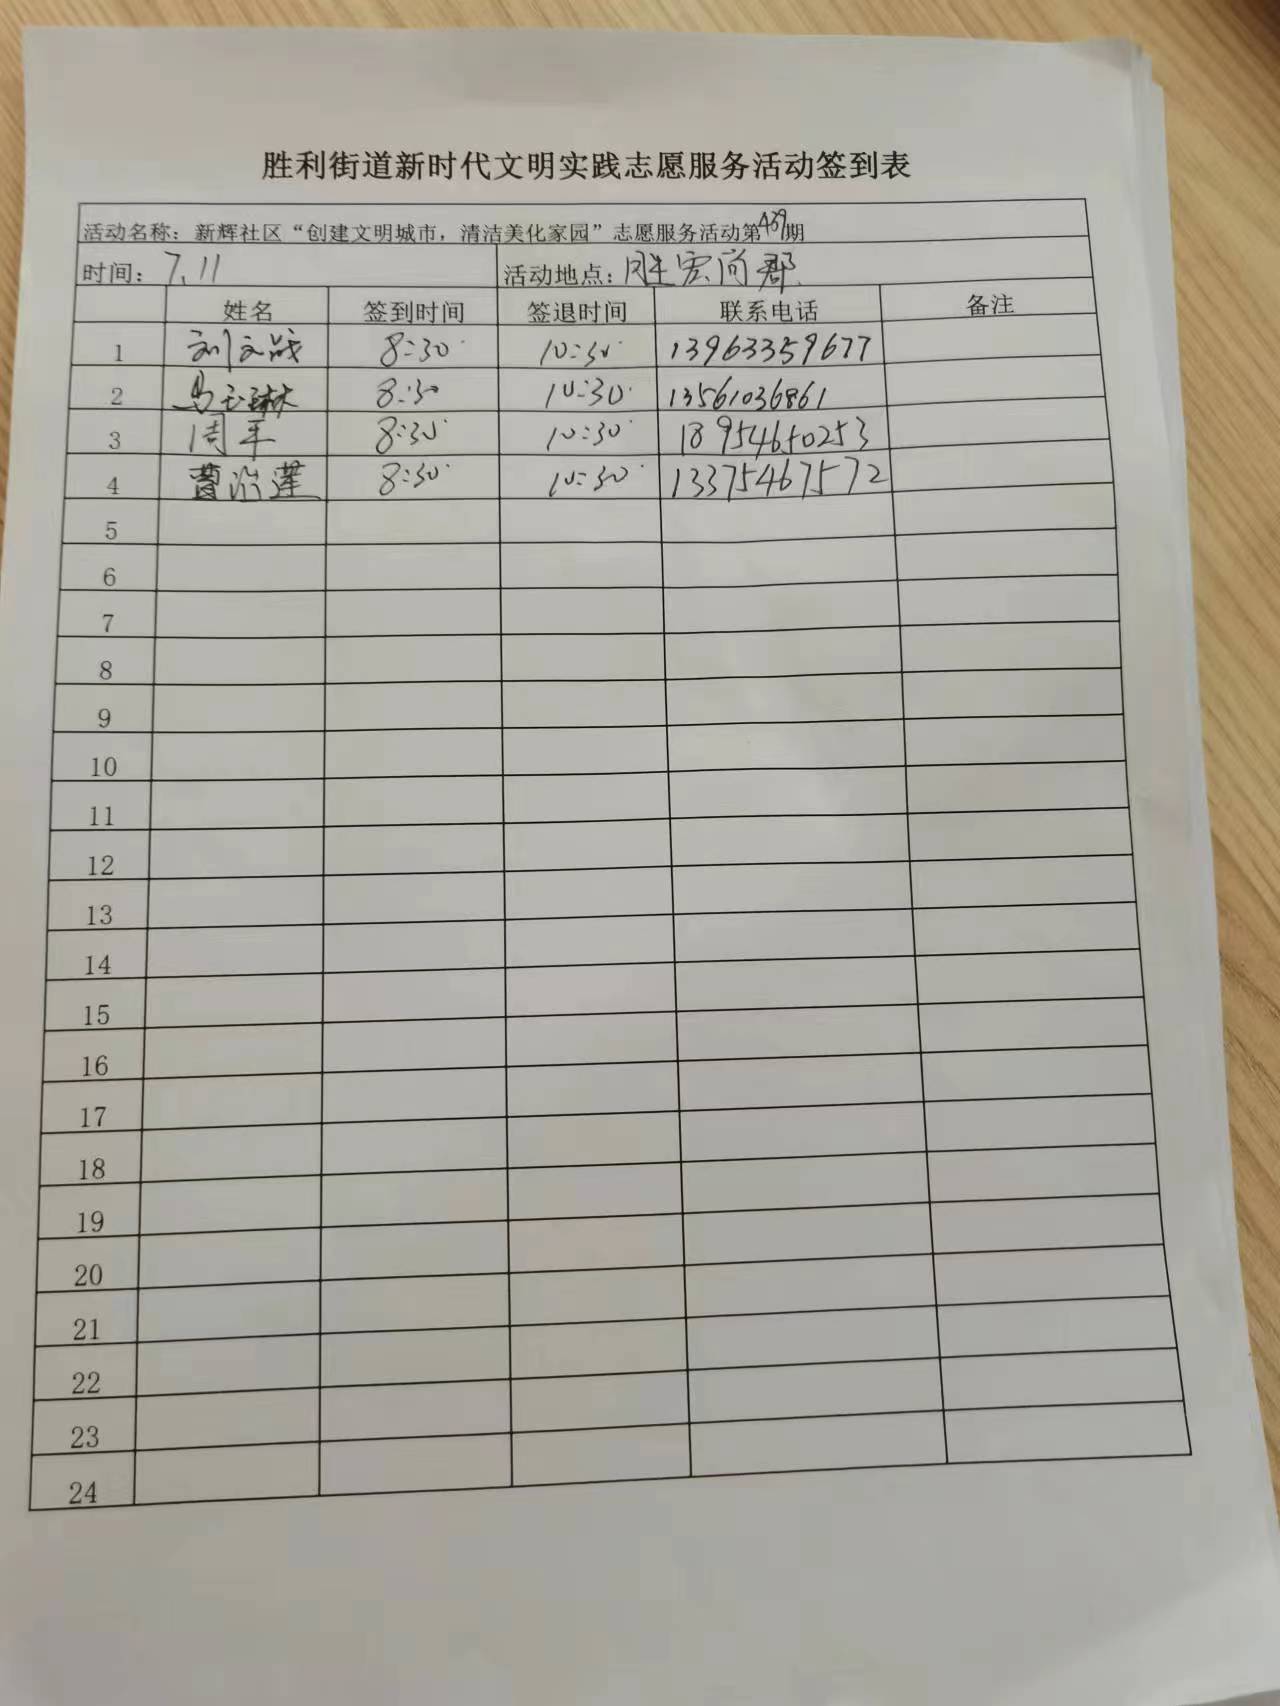 胜利街道新时代文明实践志愿服务活动签到表
活动名称：新辉社区“创建文明城市，清洁美化家园”志愿服务活动第439期
时间：7.11 活动地点：胜宏尚郡
姓名 签到时间 签退时间 联系电话 备注
1 刘文战 8:30 10:30 13963359677
2 马玉琳 8:30 10:30 13561036861
3 周平 8:30 10:30 18954650253
4 曹治莲 8:30 10:30 13375467572
5
6
7
8
9
10
11
12
13
14
15
16
17
18
19
20
21
22
23
24